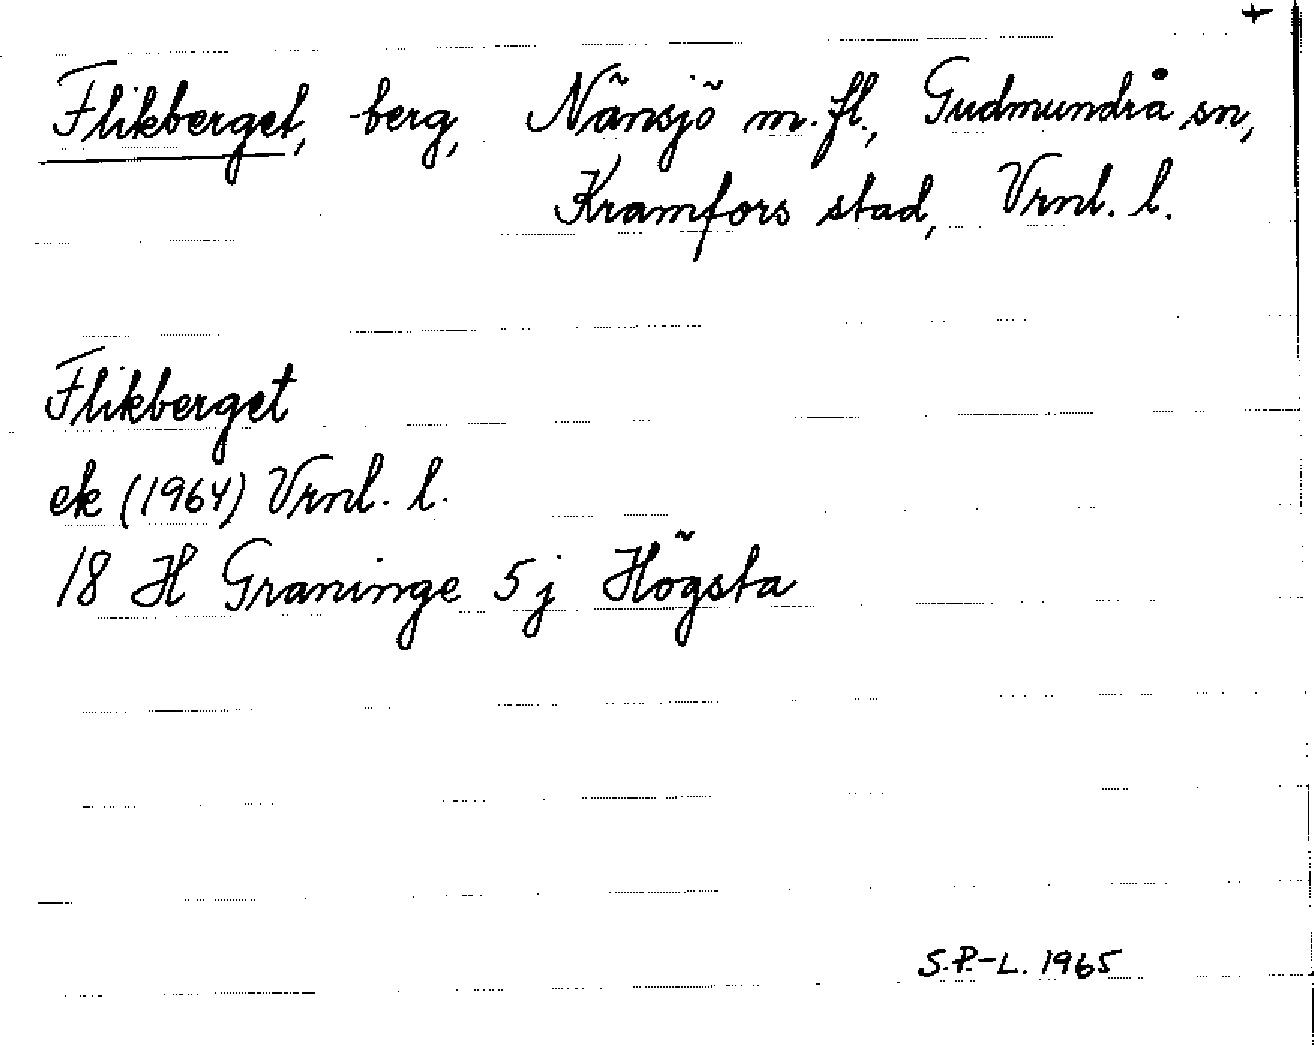 +
Flikberget, berg, Nänsjö m. fl., Gudmundrå sn,
Kramfors stad, Vrnl. l.
Flikberget
ek (1964) Vrnl. l.
18 H Graninge 5 j Högsta
S.P.-L. 1965